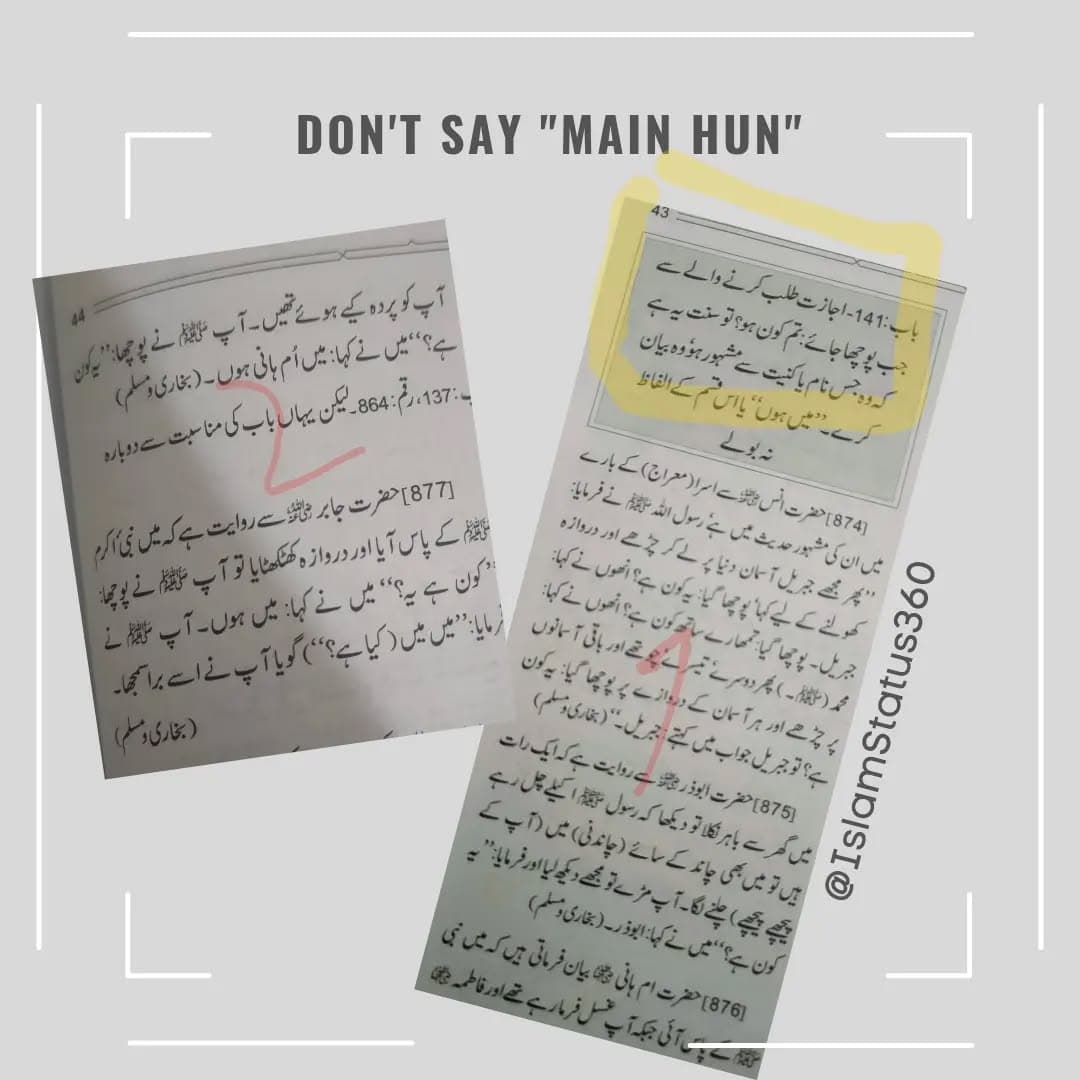 DON'T SAY "MAIN HUN"
43
باب: 141- اجازت طلب کرنے والے سے
جب پوچھا جائے: تم کون ہو؟ تو سنت یہ ہے
کہ وہ جس نام یا کنیت سے مشہور ہو، وہ بیان
کرے۔ ”میں ہوں“ یا اس قسم کے الفاظ
نہ بولے
[874] حضرت انس رضی اللہ عنہ سے اسرا (معراج) کے بارے
میں ان کی مشہور حدیث میں ہے، رسول اللہ ﷺ نے فرمایا:
”پھر مجھے جبریل آسمان دنیا پر لے کر چڑھے اور دروازہ
کھولنے کے لیے کہا، پوچھا گیا: یہ کون ہے؟ انھوں نے کہا:
جبریل۔ پوچھا گیا: تمھارے ساتھ کون ہے؟ انھوں نے کہا:
محمد (ﷺ)۔ پھر دوسرے، تیسرے، چوتھے اور باقی آسمانوں
پر چڑھے اور ہر آسمان کے دروازے پر پوچھا گیا: یہ کون
ہے؟ تو جبریل جواب میں کہتے: جبریل۔“ (بخاری و مسلم)
[875] حضرت ابوذر رضی اللہ عنہ سے روایت ہے کہ ایک رات
میں گھر سے باہر نکلا تو دیکھا کہ رسول ﷺ اکیلے چل رہے
ہیں تو میں بھی چاند کے سائے (چاندنی) میں (آپ کے
پیچھے پیچھے) چلنے لگا۔ آپ مڑے تو مجھے دیکھ لیا اور فرمایا: ”یہ
کون ہے؟“ میں نے کہا: ابوذر۔ (بخاری و مسلم)
[876] حضرت ام ہانی رضی اللہ عنہا بیان فرماتی ہیں کہ میں نبی
ﷺ کے پاس آئی جبکہ آپ غسل فرما رہے تھے اور فاطمہ رضی اللہ عنہا
44
آپ کو پردہ کیے ہوئے تھیں۔ آپ ﷺ نے پوچھا: ”یہ کون
ہے؟“ میں نے کہا: میں اُم ہانی ہوں۔ (بخاری و مسلم)
ب: 137، رقم: 864۔ لیکن یہاں باب کی مناسبت سے دوبارہ
[877] حضرت جابر رضی اللہ عنہ سے روایت ہے کہ میں نبی اکرم
ﷺ کے پاس آیا اور دروازہ کھٹکھٹایا تو آپ ﷺ نے پوچھا:
”کون ہے یہ؟“ میں نے کہا: میں ہوں۔ آپ ﷺ نے
فرمایا: ”میں میں (کیا ہے؟“) گویا آپ نے اسے برا سمجھا۔
(بخاری و مسلم)
1
2
@IslamStatus360